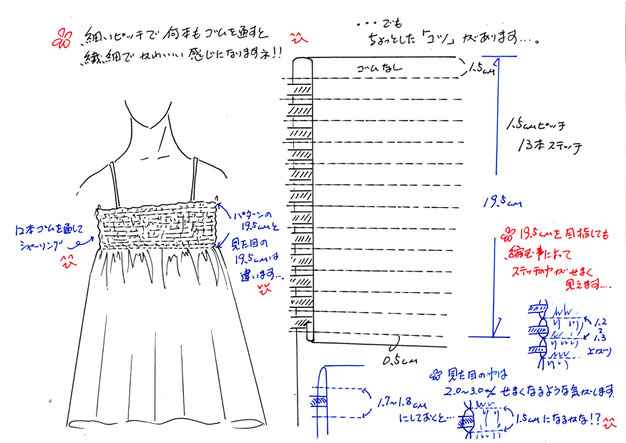 細いピッチで何本もゴムを通すと
繊細でかわいい感じになりますネ!!
・・・でも
ちょっとした「コツ」があります…。
ゴムなし
1.5cm
1.5cmピッチ
13本ステッチ
19.5cm
12本ゴムを通して
シャーリング
パターンの
19.5cmと
見た目の
19.5cmは
違います…。
19.5cmを目指しても
縮む事によって
ステッチ巾がせまく
見えます…。
1.2
1.3
0.5cm
1.7~1.8cm
にしておくと…
見た目の巾は
2.0~3.0% せまくなるような気がします
1.5cmになるかな!?